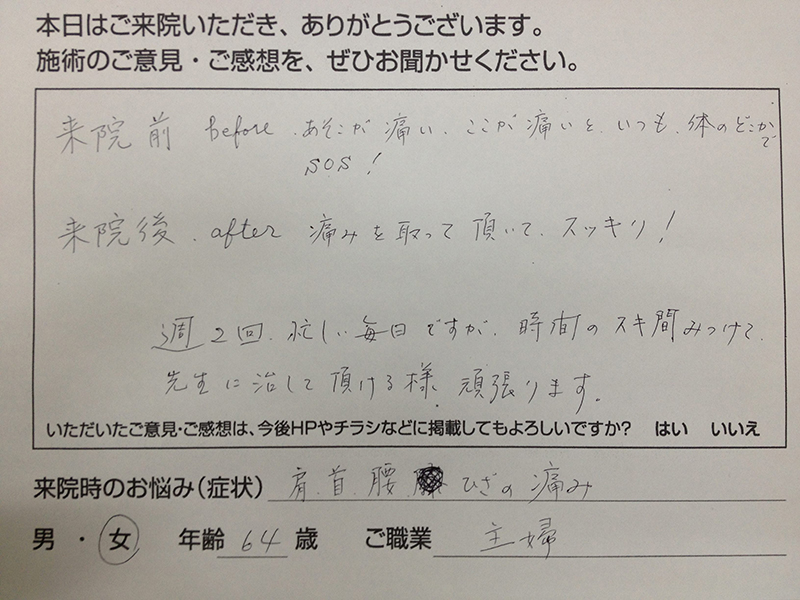 本日はご来院いただき、ありがとうございます。
施術のご意見・ご感想を、ぜひお聞かせください。
来院前 before．あそこが痛い、ここが痛いと、いつも、体のどこかで
SOS！
来院後．after 痛みを取って頂いて、スッキリ！
週2回、忙しい毎日ですが、時間のスキ間みつけて、
先生に治して頂ける様、頑張ります。
いただいたご意見・ご感想は、今後HPやチラシなどに掲載してもよろしいですか？ はい いいえ
来院時のお悩み（症状） 肩．首．腰 ひざの痛み
男・女 年齢 64 歳 ご職業 主婦